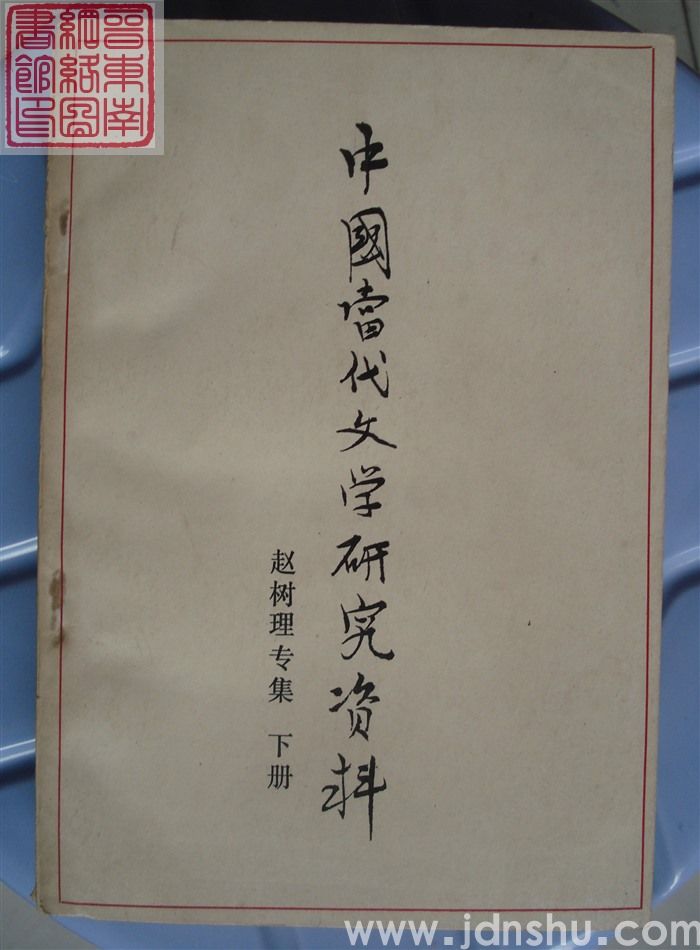 晋東南
網絡圖
書館印
中國當代文学研究资料
赵树理专集 下册
www.jdnshu.com